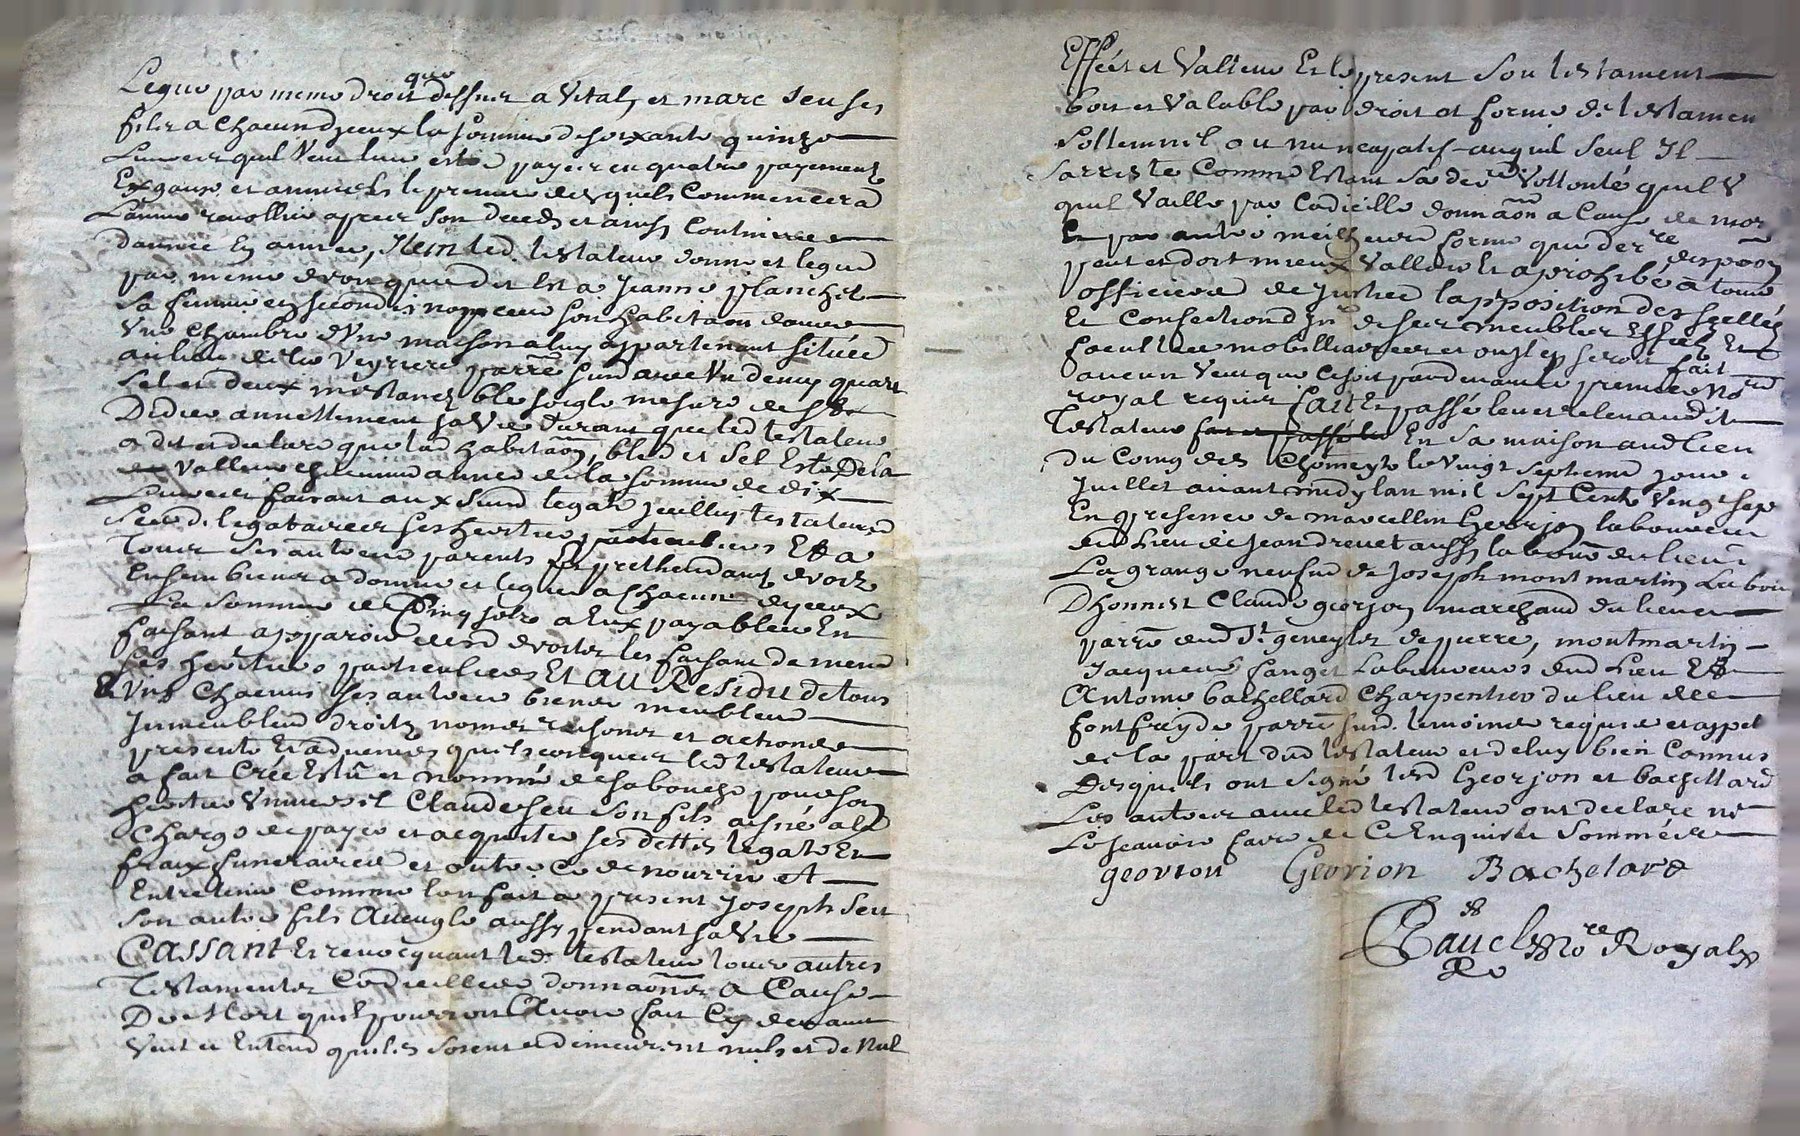 Legue par meme droit que dessus a Vital, et marc seu ses
fils a chacun dyceux la somme de soixante quinze
Livres quil veut leur estre payée en quatre payements
Esgaux et annuels le premier desquels commencera
Lannee revollue apres son deceds et ainsy continuer
dannee En annee, Item led testateur donne et legue
par meme droit que dit est a Jeanne planchet
sa femme en secondes nopces son habitaõn dans
une chambre dune maison a luy appartenant située
au lieu de la Veyrere parre susd avec un demy quart
sel et deux mestanch bled seigle mesure de St
Didier annuellement sa vie durant que led testateur
a dit et declare que lad habitaõn, bled et sel Estre De la
valleur chacune année de la somme de dix
Livres faisant aux susd legats jcelluy testateur
sesd. legataires ses heritiers particuliers Et a
tous ses autres parents Et prethendants droitz
En ses biens a donne et legue a chacun dyceux
La somme de Cinq sols a Eux payable En
faisant apparoir de sd droits les faisant de meme
ses heritiers particuliers Et AU Residu de tous
Et uns chacuns ses autres biens meubles
Jmmeubles droits noms raisons et actions
presents Et advenir quelsconques led testateur
a fait Créé Estü et nommé de sa bouche pour son
heritier universel Claude seu son fils aisné a la
Charge de payer et acquiter ses dettes legats Et
fraix funeraires et outre ce de nourrir et
Entretenir comme lon fait a present Joseph seu
son autre fils aveugle aussy pendant sa vie
CASSANT Et revocquant led. testateur tous autres
Testaments Codicilles donnaõns a Cause
De Mort quil pourroit Avoir fait Cy devant
Veut et Entend quils soient et demeurent nuls et de Nul
Effet et Valleur Et le present son testament
bon et valable par droit et forme de testamen
sollemnel ou nuncupatif auquel seul Il
sarreste Comme Estant sa dere Vollonté quil V
quil Vaille par Codicille donnaõn a Cause de mor
Et par autre meilheure forme que derre dispoõn
peut et doit mieux Valloir Et a prohibé a tous
officiers de Justice lapposition des scellés
Et Confection dInre de ses meubles Effets Et
facultes mobilliaires et ou Il en seroit fait
aucun veut que ce soit pardevant le premier Nore
royal requis FAIT Et passé leu et releu aud
Testateur fait et passé leu En sa maison aud lieu
Du Coing des Chomeyts le vingt septieme jour
Juillet avant midy lan mil sept Cents Vingt sep
En presence de marcellin Georjon laboureur
du Lieu de Jeandrevet aussy labour du lieu
La grange neufve de Joseph montmartin Labou
Dhonnest Claude georjon marchand du lieu
parre dud St geneyst de pierre, montmartin
Jacques fanget Laboureurs dud Lieu Et
Antoine bachellard Charpentier du lieu de
fontfreyde parre susd. temoins requis et appel
de la part dud testateur et de luy bien Connus
Desquels ont signé lesd Georjon et bachellard
Les autres avec led testateur ont declare ne
Le scavoir faire de Ce Enquis et sommés
georion Georion Bachelard
Nore Royal